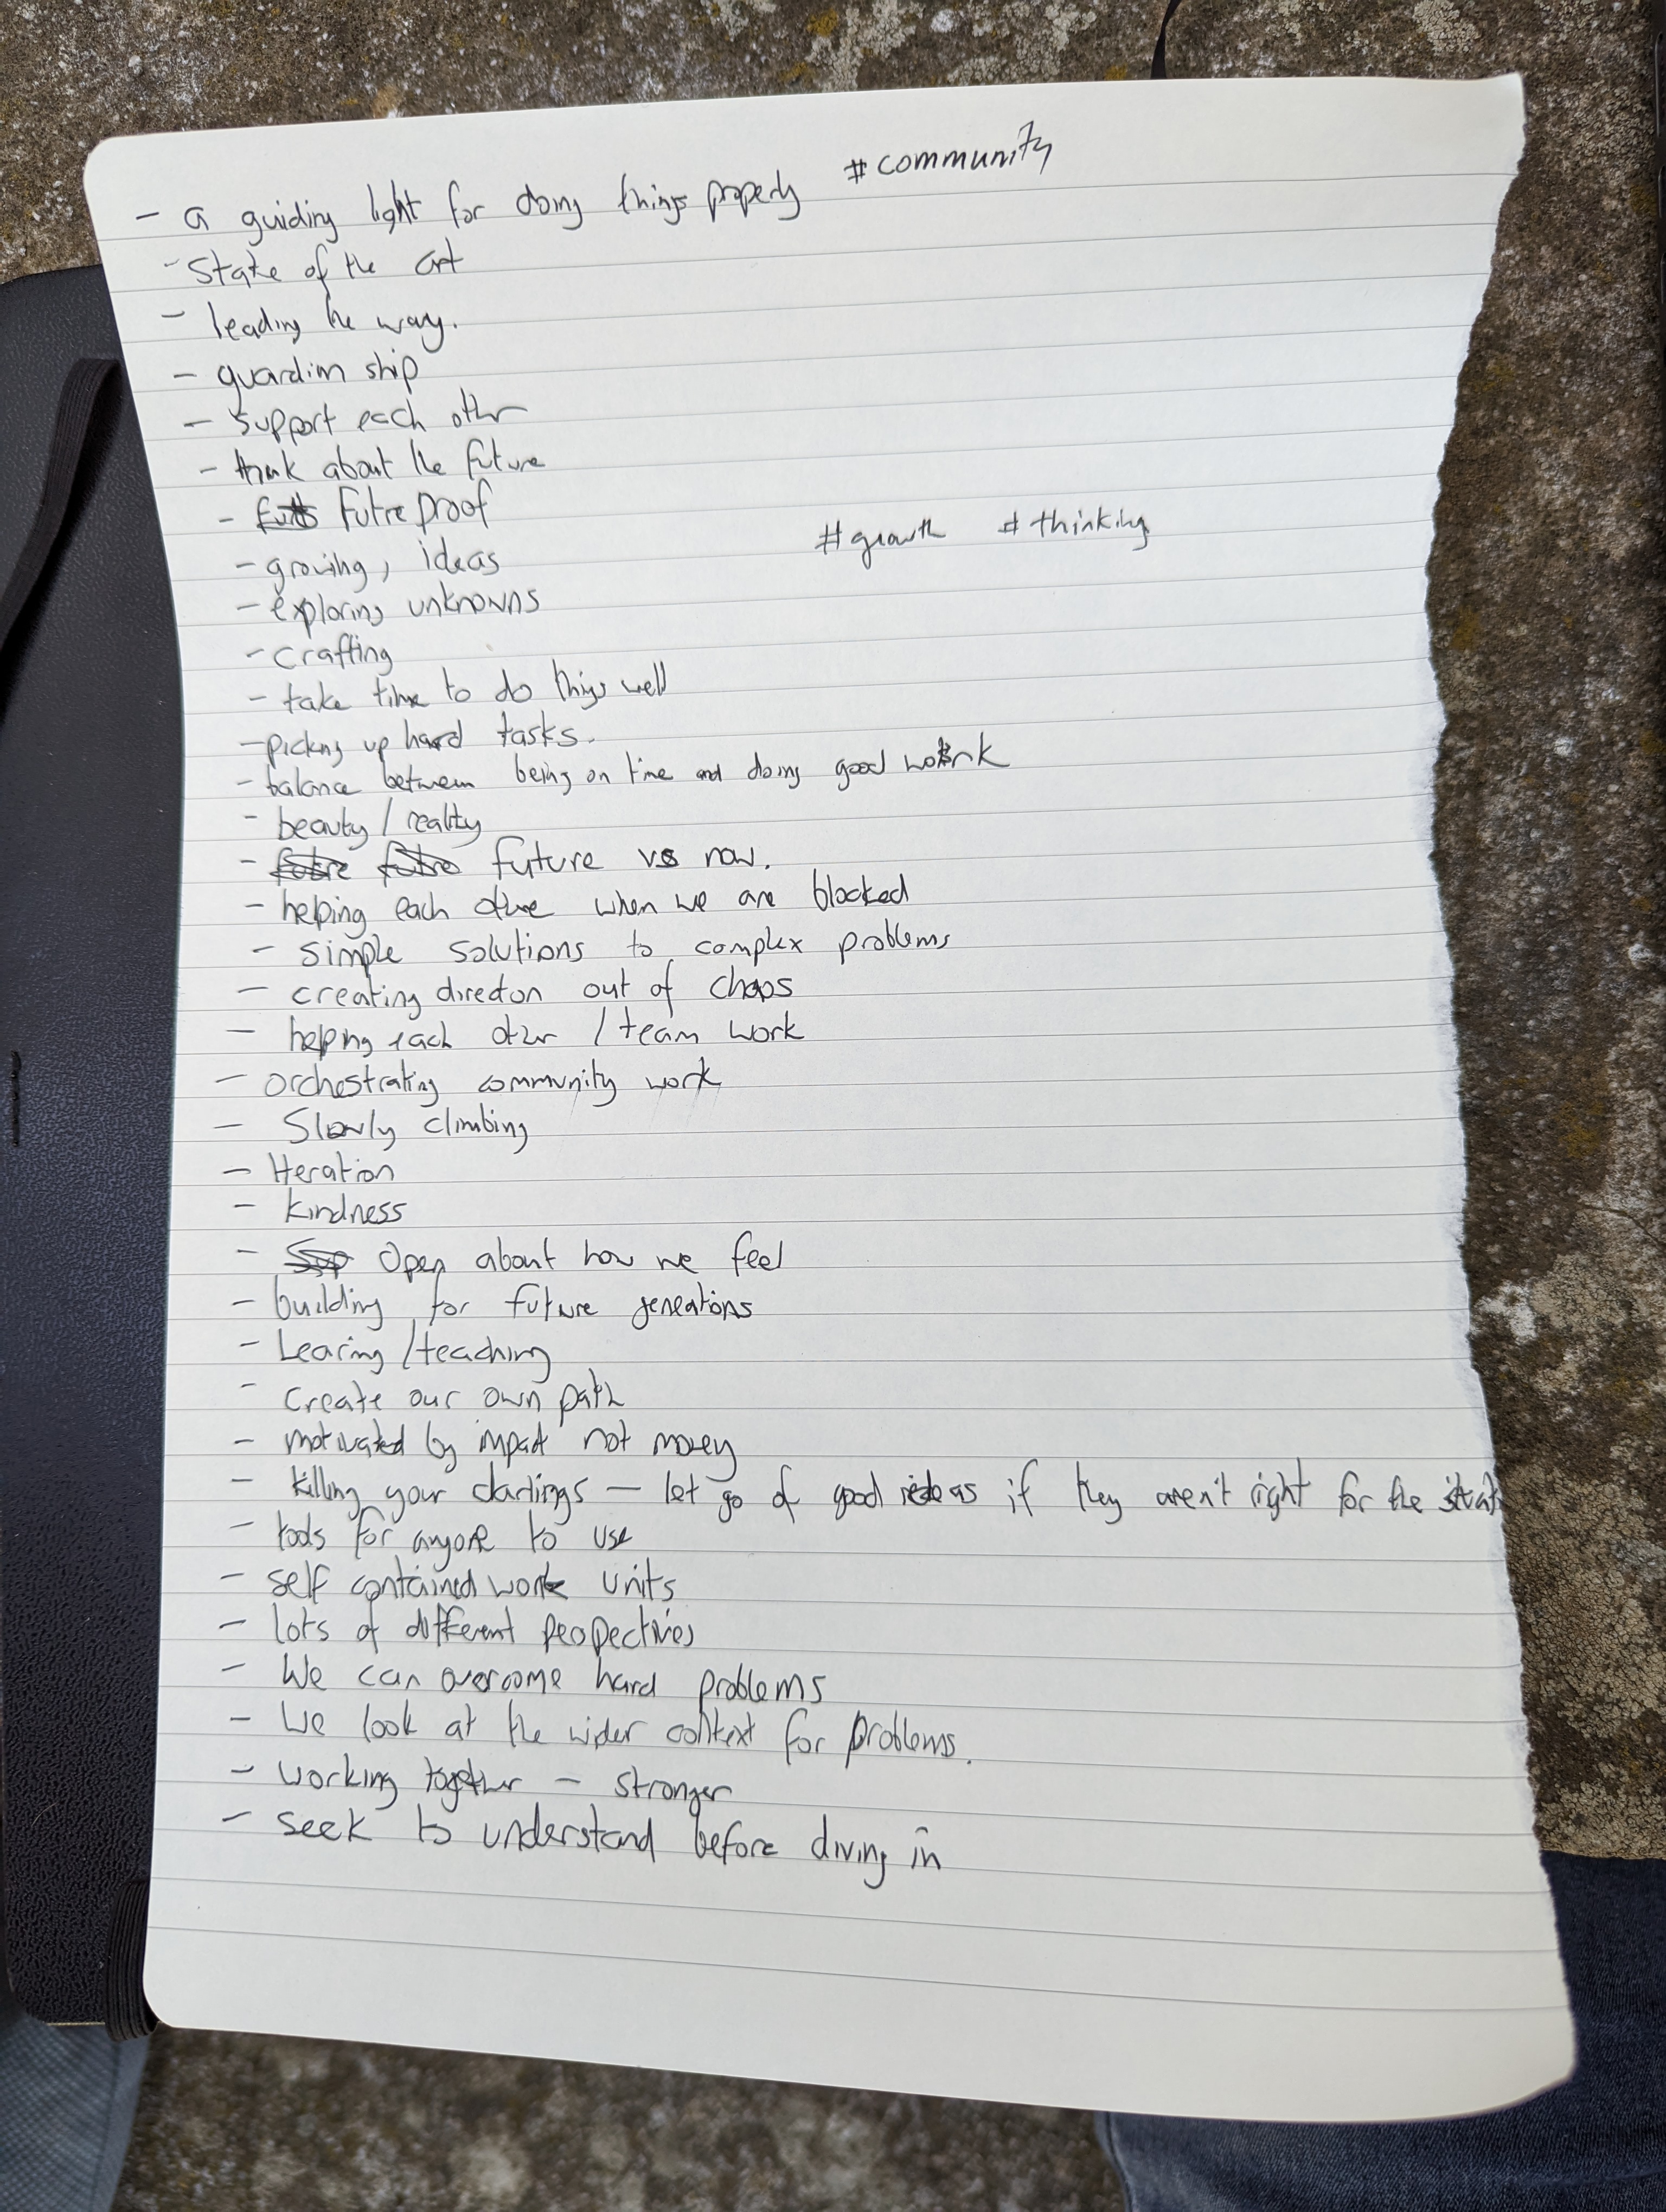 #community
- a guiding light for doing things properly
- State of the art
- leading the way.
- guardian ship
- support each other
- think about the future
- Futre proof
#growth #thinking
- growing, ideas
- exploring unknowns
- crafting
- take time to do things well
- picking up hard tasks.
- balance between being on time and doing good work
- beauty / reality
- future vs now.
- helping each other when we are blocked
- simple solutions to complex problems
- creating direction out of chaos
- helping each other / team work
- orchestrating community work
- Slowly climbing
- Iteration
- kindness
- Open about how we feel
- building for future generations
- Learing / teaching
- Create our own path
- motivated by impact not money
- killing your darlings - let go of good ideas if they aren't right for the
- tools for anyone to use
- self contained work units
- lots of different perspectives
- We can overcome hard problems
- We look at the wider context for problems.
- working together - stronger
- seek to understand before diving in